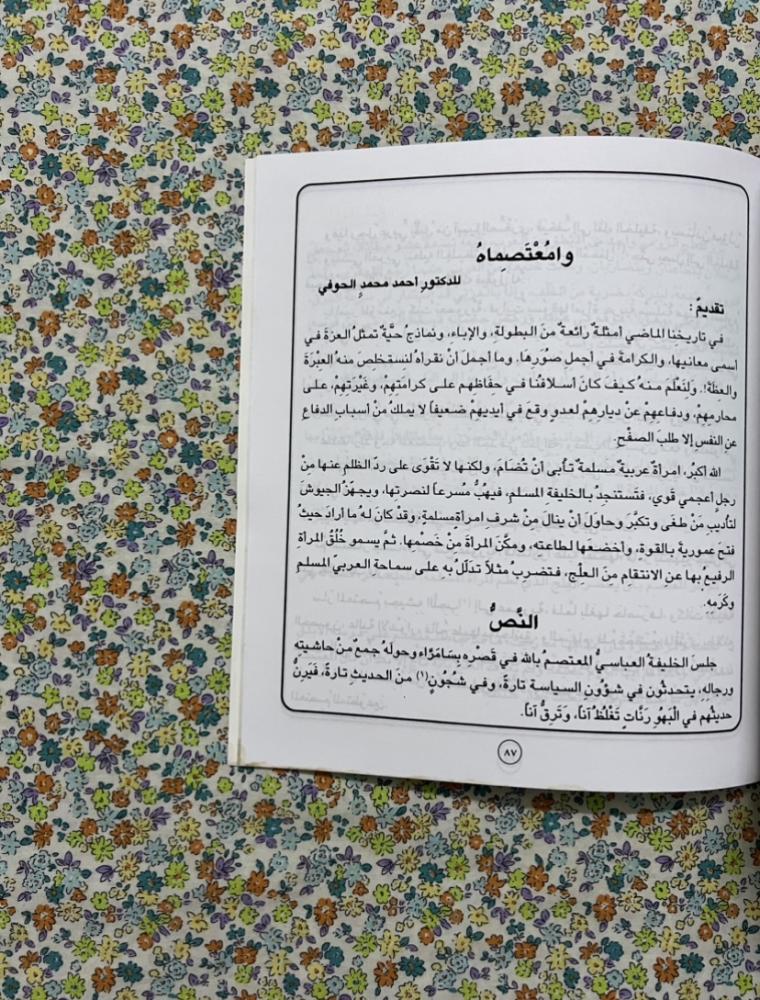 وامُعْتَصماهُ
للدكتورِ أحمد محمدٍ الحوفي
تقديمٌ :
في تاريخنا الماضي أمثلةٌ رائعةٌ منَ البطولةِ، والإباء، ونماذجُ حيَّةٌ تمثلُ العزةَ في
أسمى معانيها، والكرامةَ في أجملِ صُوَرِها. وما أجملَ أنْ نقرأهُ لنستخلصَ منهُ العبْرَةَ
والعظةَ! وَلنَعْلَمَ منهُ كيفَ كانَ أسلافُنا في حفاظهم على كرامَتهِمْ، وغَيْرَتِهِمْ، على
محارمِهِمْ، ودفاعِهِمْ عنْ ديارِهِمْ لعدوٍ وقعَ في أيديهمْ ضعيفاً لا يملكُ منْ أسبابِ الدفاعِ
عنِ النفسِ إلا طلبَ الصفْحِ.
الله أكبرُ، امرأةٌ عربيةٌ مسلمةٌ تأبى أنْ تُضامَ، ولكنها لا تقْوَى على ردِّ الظلمِ عنها منْ
رجلٍ أعجميٍ قويٍ، فتستنجدُ بالخليفةِ المسلمِ، فيهُبُّ مُسرعاً لنصرتها، ويجهّزُ الجيوشَ
لتأديبِ مَنْ طغى وتكبَّرَ وحاوَلَ أنْ ينالَ منْ شرفِ امرأةٍ مسلمةٍ، وقدْ كانَ لهُ ما أرادَ حيثُ
فتحَ عموريةَ بالقوةِ، وأخضعَها لطاعتهِ، ومكَّنَ المرأةَ منْ خَصْمِها. ثمَّ يسمو خُلُقُ المرأةِ
الرفيعُ بها عنِ الانتقامِ منَ العلْجِ، فتضرِبُ مثلاً تدلّلُ به على سماحةِ العربيّ المسلمِ
وكَرَمِهِ.
النَّصُّ
جلسَ الخليفةُ العباسيُّ المعتصمُ باللهِ في قصْرِه بسَامَرَّاء وحولَهُ جمعٌ منْ حاشيتهِ
ورجالِهِ، يتحدثُون في شؤُونِ السياسةِ تارةً، وفي شُجُونٍ(١) منَ الحديثِ تارةً، فَيَرِنُّ
حديثُهم في الْبَهْوِ رَنَّاتٍ تَغْلُظُ آناً، وَتَرِقُّ آناً.
٨٧